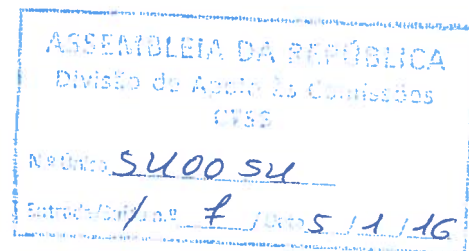 ASSEMBLEIA DA REPÚBLICA
Divisão de Apoio às Comissões
CTSS
N.º Único 540054
Entrada/Saída n.º / 7 / Data 5 / 1 / 16